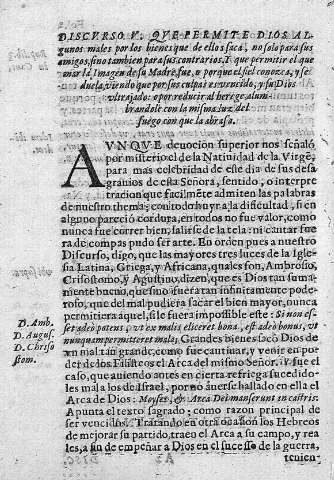 DISCVRSO V. QVE PERMITE DIOS AL-
gunos males por los bienes que de ellos saca, no solo para sus
amigos, sino tambien para sus contrarios. Y que permitir el que-
mar la Imagen de su Madre, fue, o porque el ciel conozca, y se
duela, viendo que por sus culpas es vencido, y su Dios
vltrajado: o por reducir al herege, alum-
brandole con la misma luz del
fuego con que la abrasa.
AVNQVE deuocion superior nos señaló
por misterio el de la Natiuidad de la Virgē,
para mas celebridad de este dia de sus desa-
grauios de esta Señora, sentido, o interpre-
tracion que facilmēte admiten las palabras
de nuestro thema; esuito de huyr a la dificultad, si en
alguno pareció cordura, en todos no fue valor, como
nunca fue correr bien, salirse de la tela: ni cantar fue-
ra de compas pudo ser arte. En orden pues a nuestro
Discurso, digo, que las mayores tres luces de la Igle-
sia Latina, Griega, y Africana, quales son, Ambrosio,
Crisostomo, y Agustino, dizen, que es Dios tan suma-
mente bueno, que sino fuera tan infinitamente pode-
roso, que del mal pudiera sacar el bien mayor, nunca
permitiera aquel, si le fuera impossible este: Si non es-
D. Amb. set adeò potens, vt ex malis eliceret bona, est adeò bonus, vt
D. Augus. nunquam permitteret mala; Grandes bienes sacò Dios de
D. Chriso vn mal tan grande, como fue cautiuar, y venir en po-
stom. der de los Filisteos el Arca del mismo Señor. Y fue el
caso, que auiendo antes en cierta refriega sucedido-
les mal a los de Israel, por no auerse hallado en ella el
Arca de Dios: Moyses, & Arca Dei manserunt in castris:
Apunta el texto sagrado; como razon principal de
ser vencidos. Tratando en otra ocasion los Hebreos
de mejorar su partido, traen el Arca a su campo, y rea-
les, a fin de empeñar a Dios en el sucesso de la guerra,
tenien-